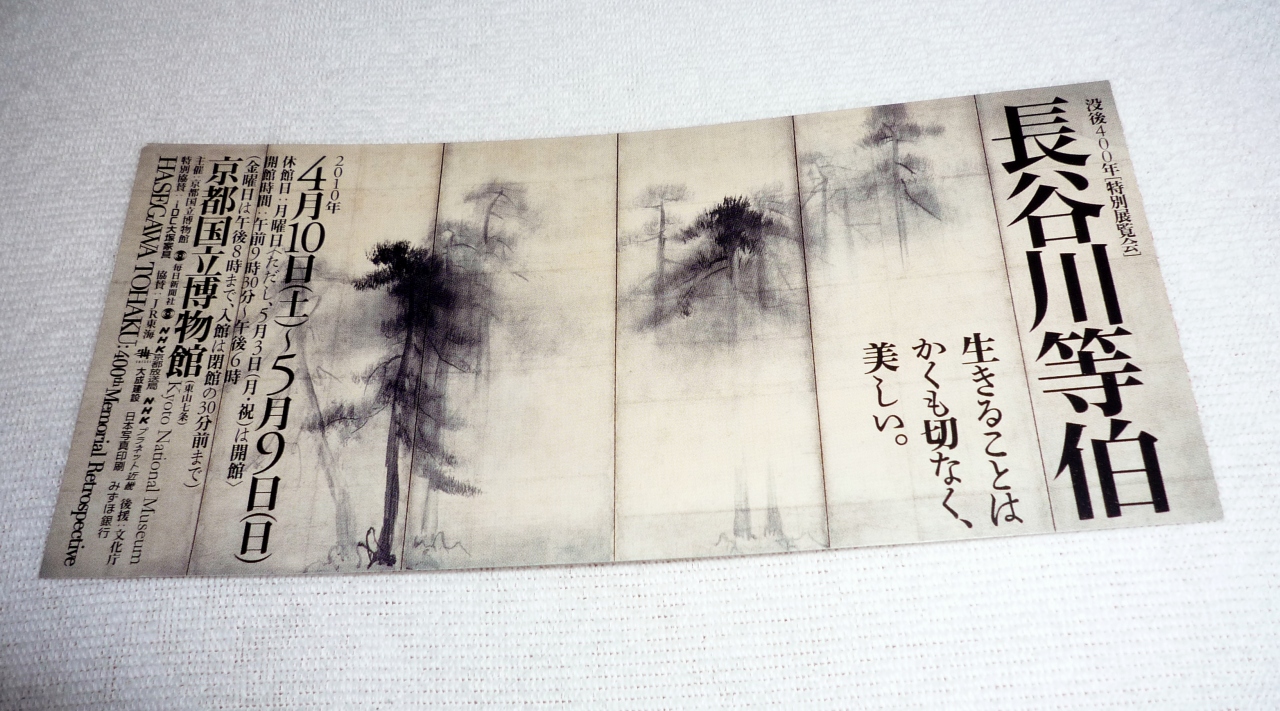 没後400年[特別展覧会]
長谷川等伯
生きることは
かくも切なく、
美しい。
2010年
4月10日(土)〜5月9日(日)
休館日:月曜日〈ただし、5月3日(月・祝)は開館〉
開館時間:午前9時30分〜午後6時
(金曜日は午後8時まで、入館は閉館の30分前まで)
京都国立博物館(東山七条)
Kyoto National Museum
主催:京都国立博物館 毎日新聞社 NHK京都放送局 NHKプラネット近畿 後援:文化庁
特別協賛:IDC大塚家具 協賛:JR東海 大成建設 日本写真印刷 みずほ銀行
HASEGAWA TOHAKU: 400th Memorial Retrospective